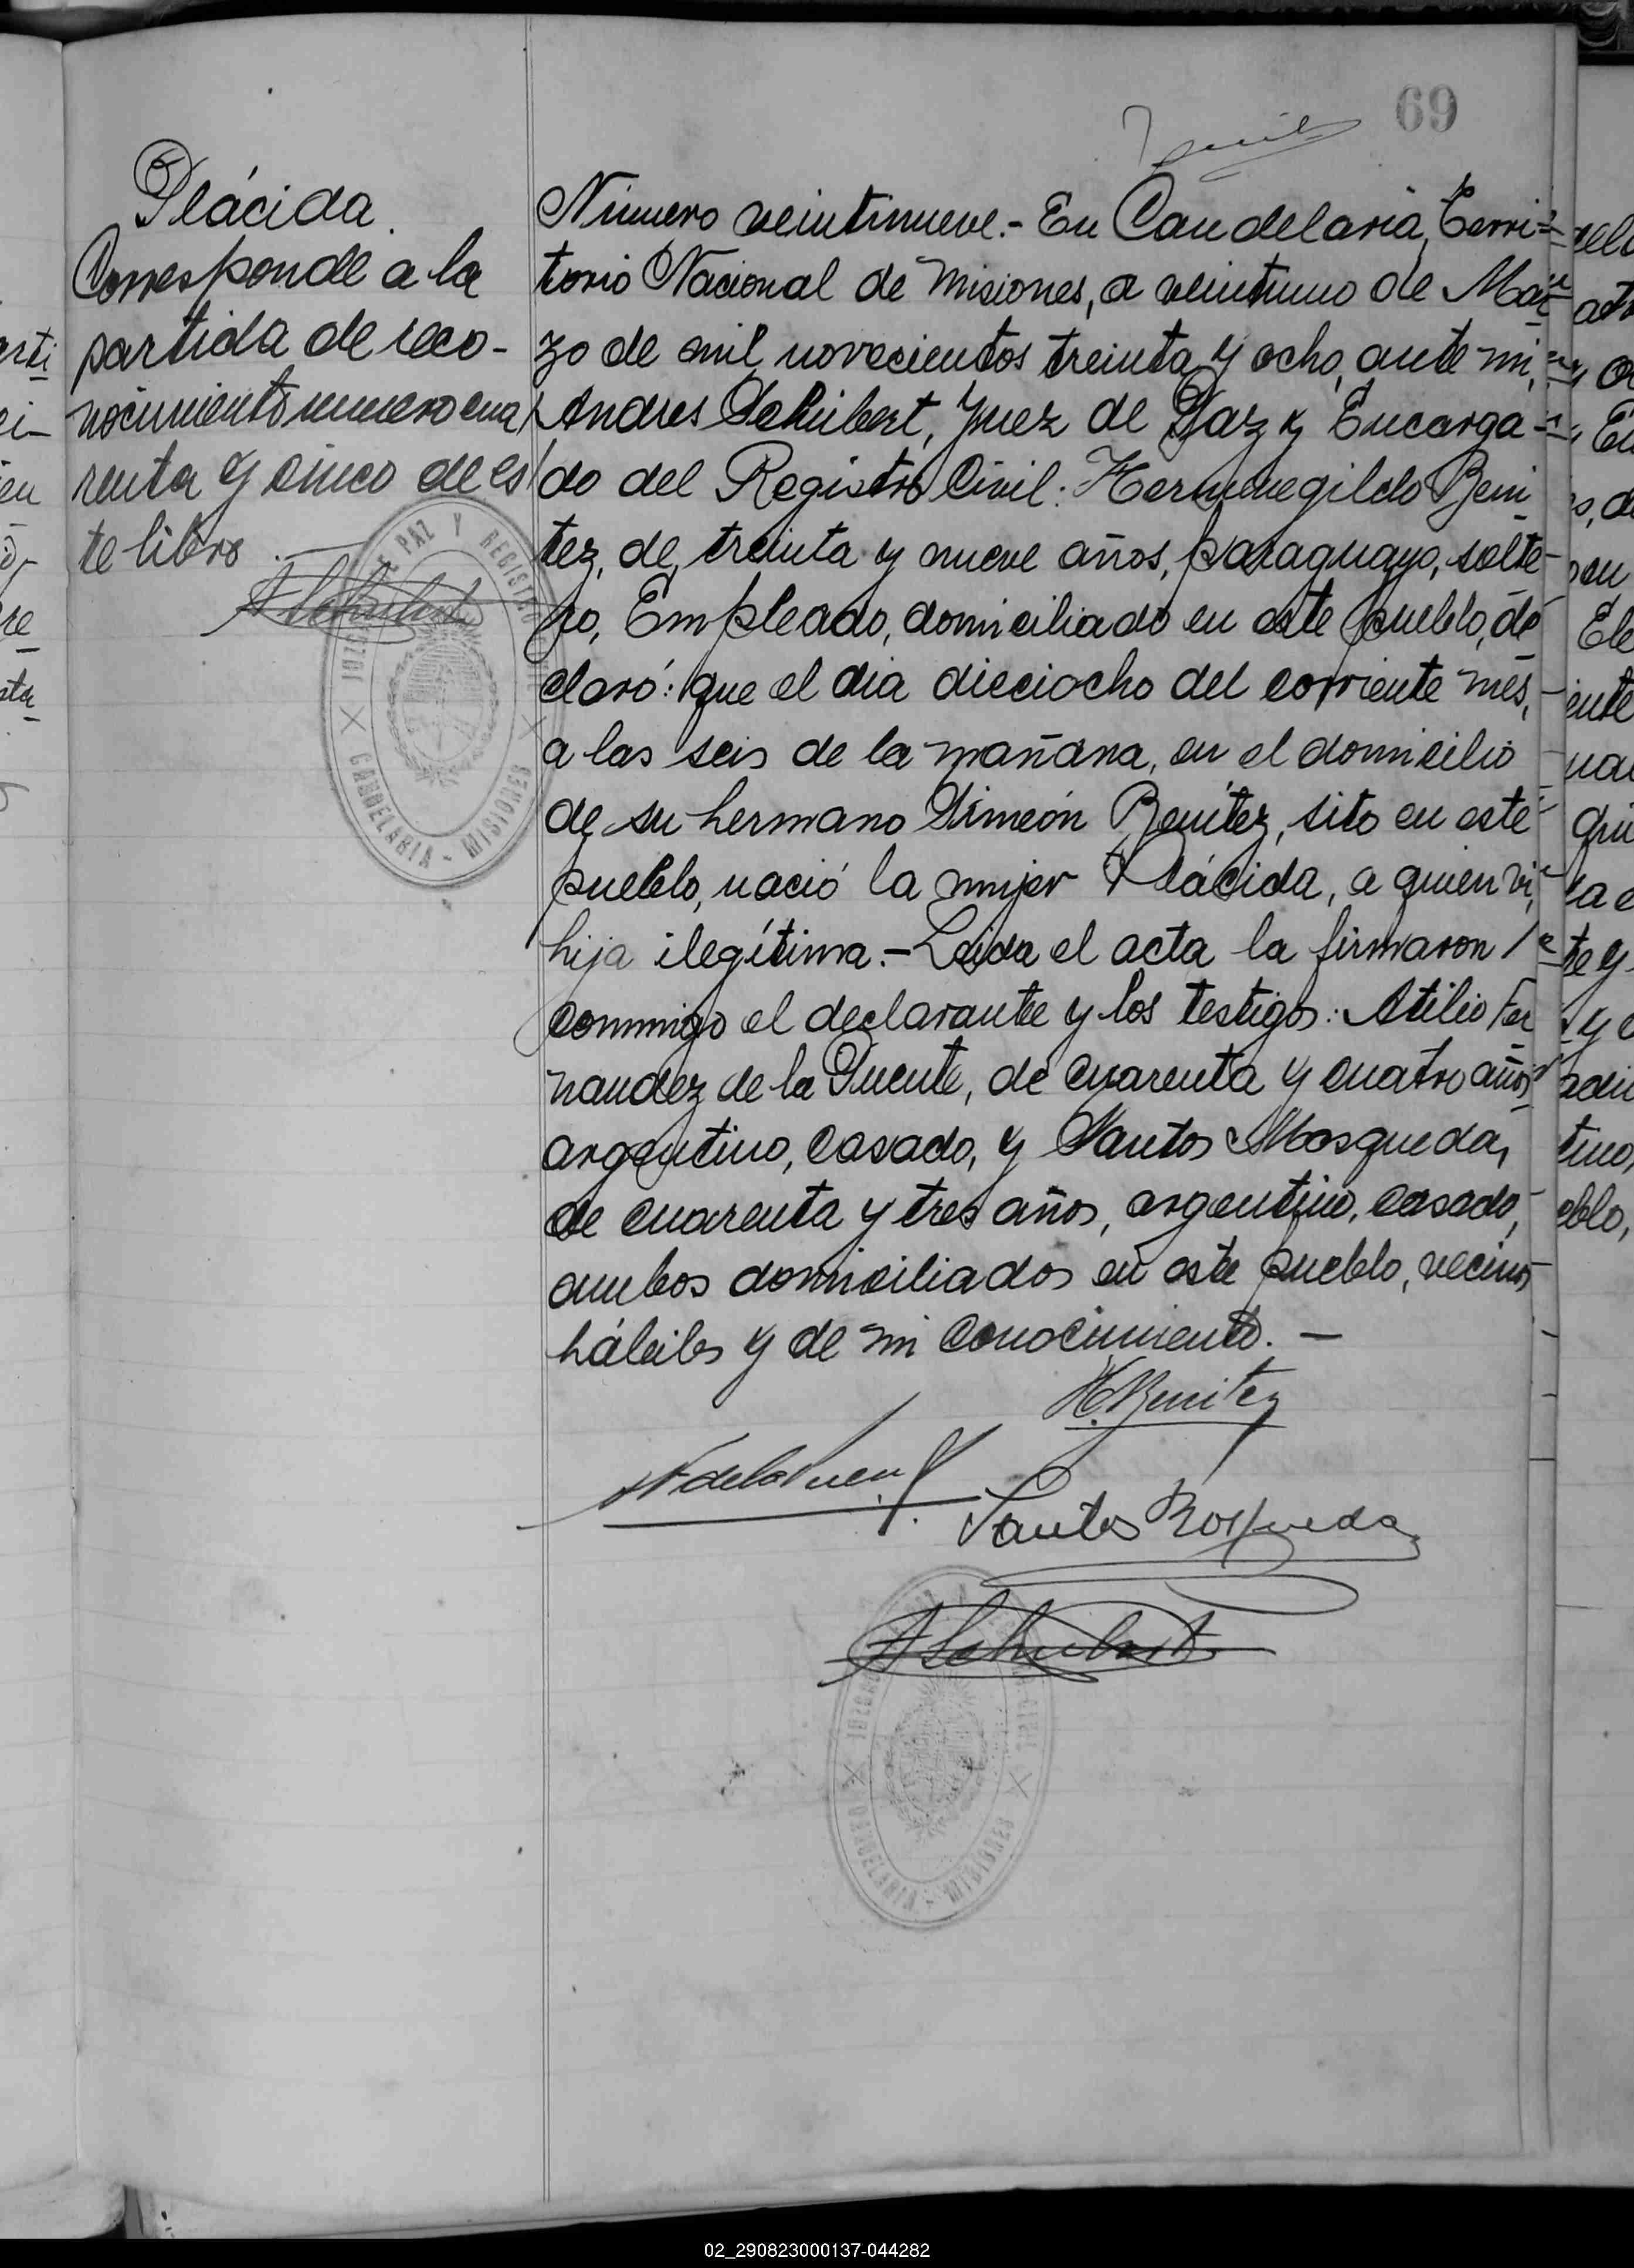 69
Plácida.
Corresponde a la
partida de reco-
nocimiento numero cua
renta y cinco de es
te libro.
A Schubert
Número veintinueve.- En Candelaria, Terri-
torio Nacional de Misiones, a veintiuno de Mar
zo de mil novecientos treinta y ocho, ante mi,
Andres Schubert, Juez de Paz y Encarga-
do del Registro Civil: Hermenegildo Beni
tez, de treinta y nueve años, paraguayo, solte-
ro, Empleado, domiciliado en este pueblo, de
claró: que el dia dieciocho del corriente mes,
a las seis de la mañana, en el domicilio
de su hermano Simeón Benítez, sito en este
pueblo, nació la mujer Plácida, a quien vi,
hija ilegítima.- Leida el acta la firmaron
conmigo el declarante y los testigos: Atilio Fer
nandez de la Puente, de cuarenta y cuatro años
argentino, casado, y Santos Mosqueda,
de cuarenta y tres años, argentino, casado,
ambos domiciliados en este pueblo, vecinos
hábiles y de mi conocimiento. -
H. Benitez
Santos Mosqueda
A Schubert
JUZGADO DE PAZ Y REGISTRO CIVIL
CANDELARIA - MISIONES
JUZGADO DE PAZ Y REGISTRO CIVIL
CANDELARIA - MISIONES
02_290823000137-044282